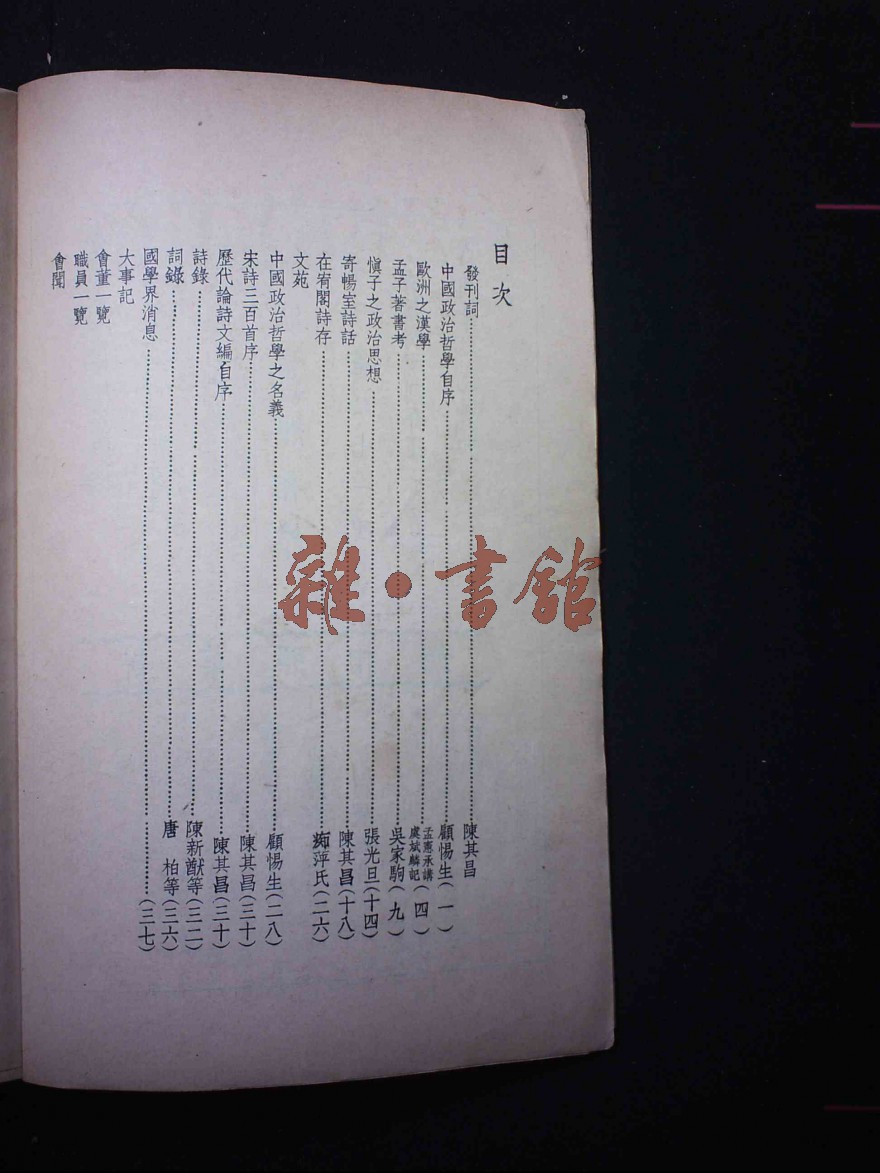 目次
發刊詞 陳其昌
中國政治哲學自序 顧惕生(一)
歐洲之漢學 孟憲承講 虞斌麟記(四)
孟子著書考 吳家駒(九)
愼子之政治思想 張光旦(十四)
寄暢室詩話 陳其昌(十八)
在宥閣詩存 痴萍氏(二六)
文苑
中國政治哲學之名義 顧惕生(二八)
宋詩三百首序 陳其昌(三十)
歷代論詩文編自序 陳其昌(三十)
詩錄 陳新猷等(三二)
詞錄 唐柏等(三六)
國學界消息 (三七)
大事記
會董一覽
職員一覽
會聞
雜·書館